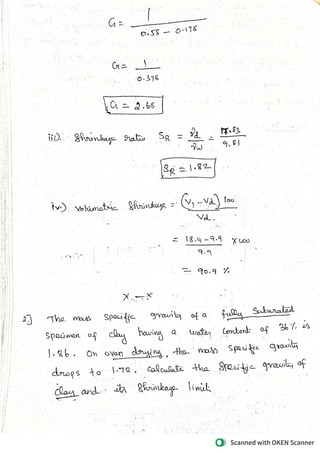 G = 1
0.55 - 0.175
G = 1
0.375
G = 2.65
iii). Shrinkage ratio SR = γd / γw = 17.83 / 9.81
SR = 1.82
iv.) Volumetric Shrinkage = (V1 - Vd) 100
Vd.
= 18.9 - 9.9 X 100
9.9
= 90.9 %
X — X
2] The mass specific gravity of a fully saturated
specimen of clay having a water content of 36% is
1.86. On oven drying, the mass specific gravity
drops to 1.72. Calculate the specific gravity of
clay and its Shrinkage limit.
Scanned with OKEN Scanner